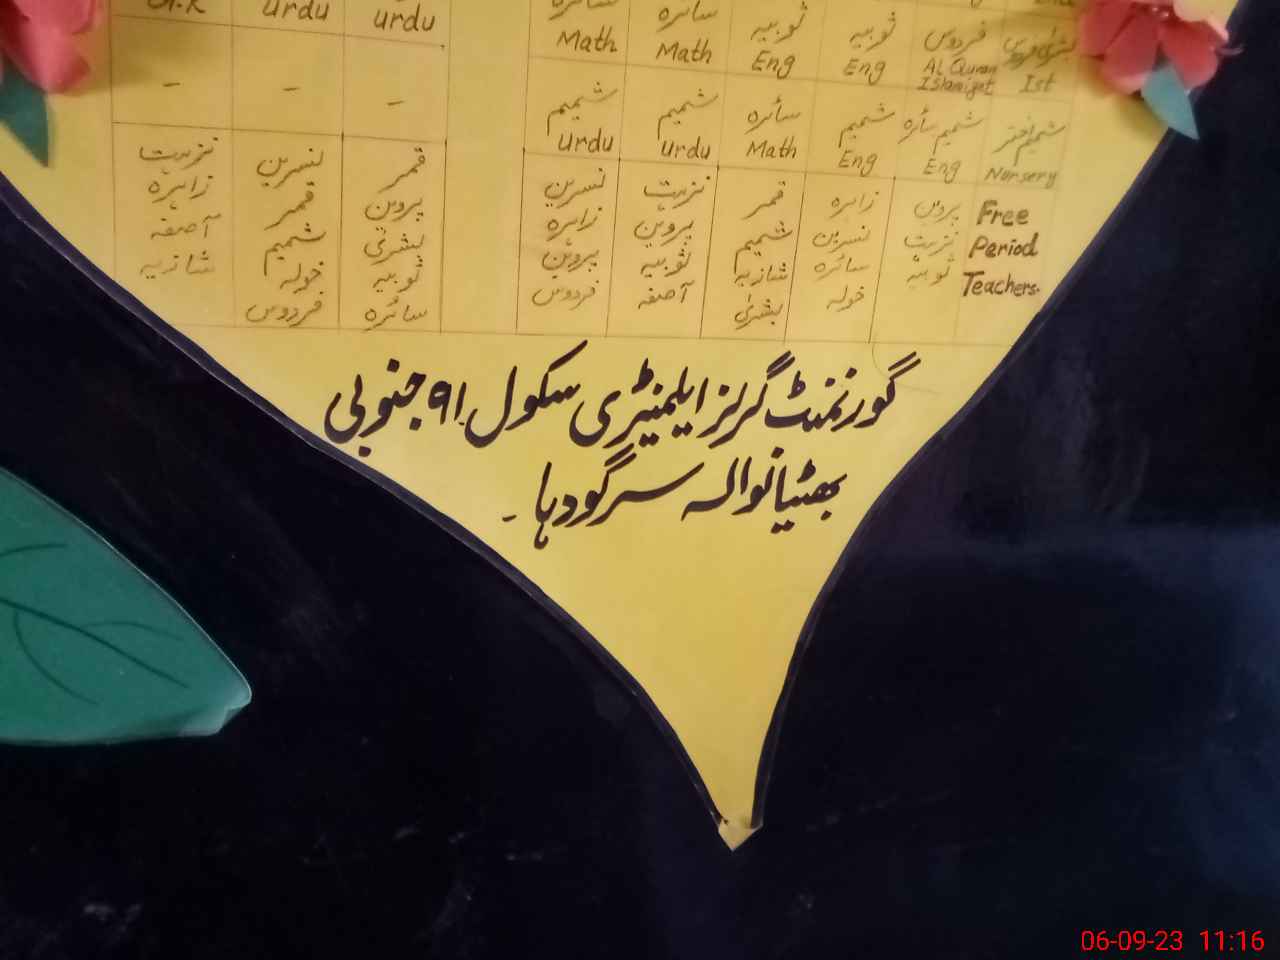 G.K Urdu Urdu سائرہ سائرہ ثوبیہ ثوبیہ فردوس
Math Math Eng Eng AL Quran Islamiyat Ist
شمیم شمیم سائرہ شمیم شمیم سائرہ شمیم اختر
- - - Urdu Urdu Math Eng Eng Nursery
Free Period Teachers.
پروین نزہت ثوبیہ
زاہرہ نسرین سائرہ خولہ
قمر شمیم شازیہ بشریٰ
نزہت پروین ثوبیہ آصفہ
نسرین زاہرہ پروین فردوس
قمر پروین بشریٰ ثوبیہ سائرہ
نسرین قمر شمیم خولہ فردوس
نزہت زاہرہ آصفہ شازیہ
گورنمنٹ گرلز ایلمنیٹری سکول ۹۱ جنوبی
بھٹیانوالہ سرگودہا ۔
06-09-23 11:16